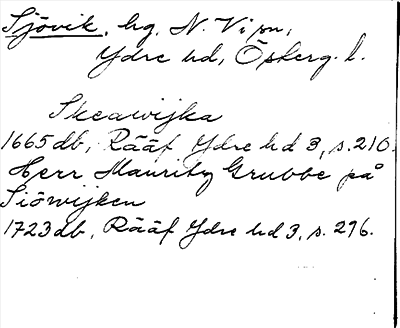 Sjövik, hg, N. Vi sn,
Ydre hd, Österg. l.
Skeawijka
1665 db, Rääf Ydre hd 3, s. 210.
Herr Mauritz Grubbe på
Siöwijken
1723 db, Rääf Ydre hd 3, s. 296.